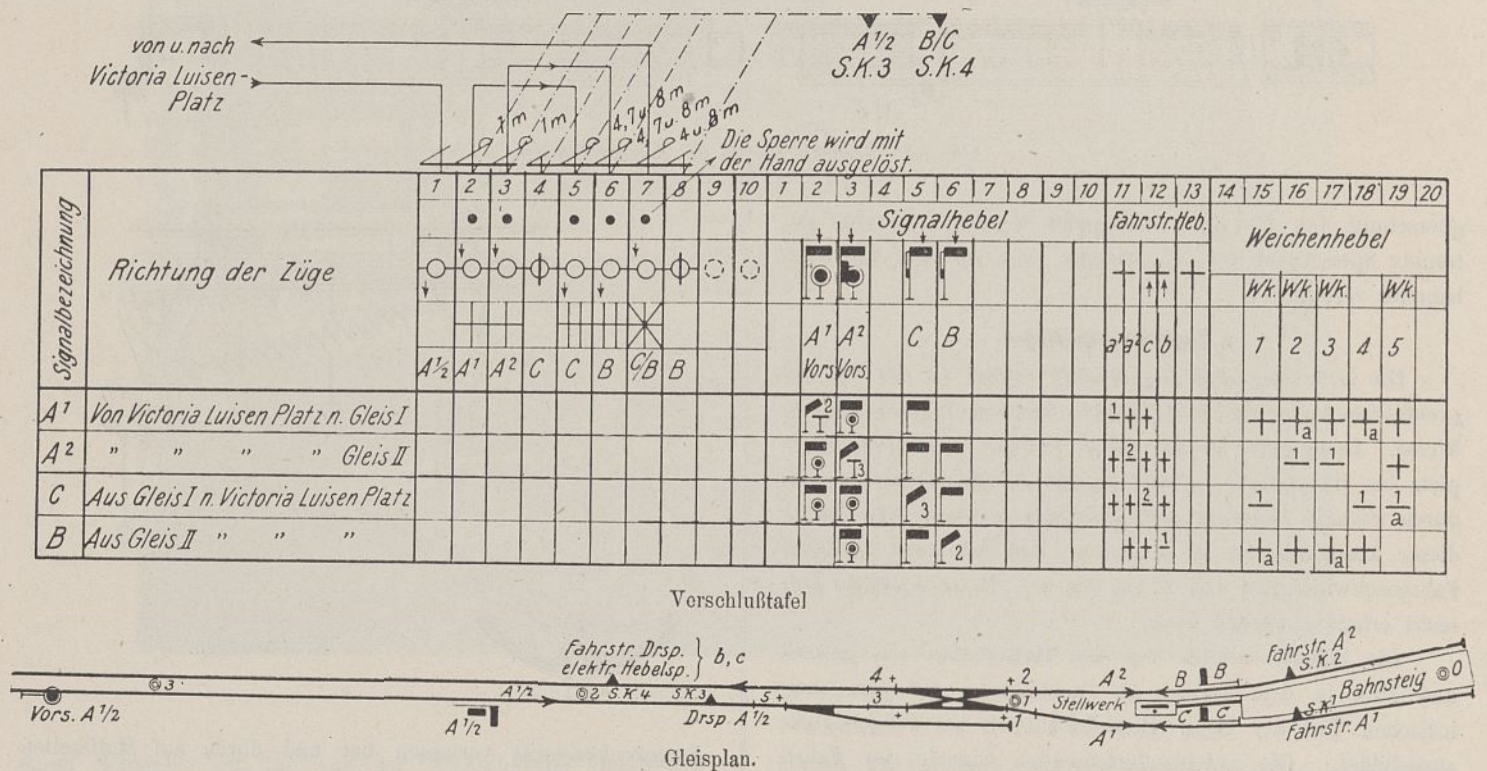 von u. nach
Victoria Luisen-
Platz
A½ B/C
S.K.3 S.K.4
1m 1m 4,7u.8m 4,7u.8m 4u.8m
Die Sperre wird mit
der Hand ausgelöst.
Signalbezeichnung
Richtung der Züge
1 2 3 4 5 6 7 8 9 10 1 2 3 4 5 6 7 8 9 10 11 12 13 14 15 16 17 18 19 20
Signalhebel
Fahrstr. Heb.
Weichenhebel
Wk. Wk. Wk. Wk.
A½ A¹ A² C C B C/B B
A¹ A² C B
Vors. Vors.
a¹ a² c b
1 2 3 4 5
A¹ Von Victoria Luisen Platz n. Gleis I 2 1 a a
A² " " " " Gleis II 3 2 1 1
C Aus Gleis I n. Victoria Luisen Platz 3 2 1 1 1 a
B Aus Gleis II " " " 2 1 a a
Verschlußtafel
Fahrstr. Drsp.
elektr. Hebelsp. } b, c
Fahrstr. A²
S.K.2
3 A½ 2 S.K 4 S.K.3 5+ 4+ 3 +2 1 A² B B Bahnsteig 0
Stellwerk
Vors. A½ A½ Drsp A½ + +1 A¹ C C S.K¹
Fahrstr. A¹
Gleisplan.